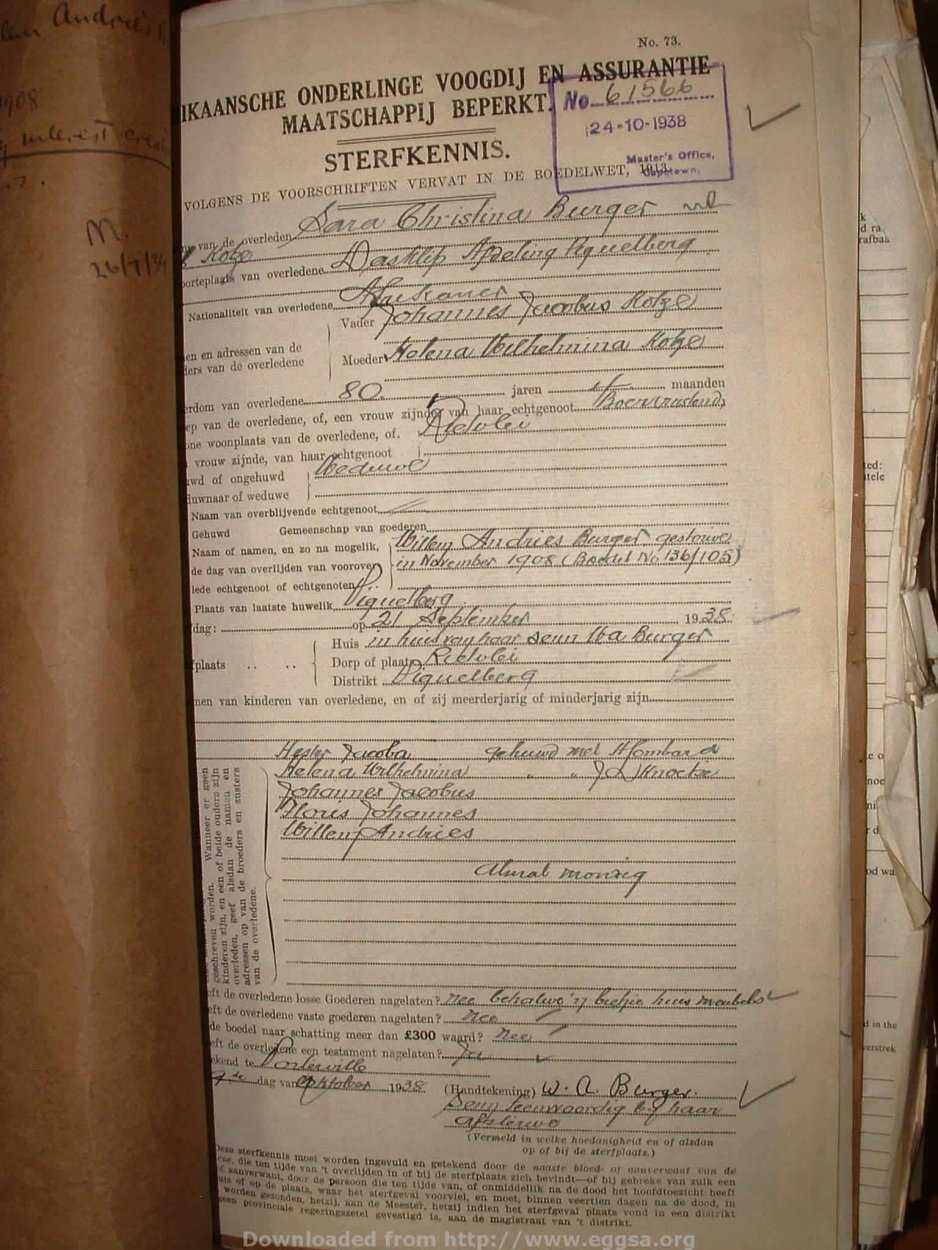 No. 73.
IKAANSCHE ONDERLINGE VOOGDIJ EN ASSURANTIE
MAATSCHAPPIJ BEPERKT.
No 61566
24-10-1938
Master's Office,
Capetown.
STERFKENNIS.
VOLGENS DE VOORSCHRIFTEN VERVAT IN DE BOEDELWET, 1913.
van de overleden Sara Christina Burger
Kotze
oorteplaats van overledene Dasklip Afdeling Piquetberg
Nationaliteit van overledene Afrikaner
Vader Johannes Jacobus Kotze
en en adressen van de
ders van de overledene
Moeder Helena Wilhelmina Kotze
erdom van overledene 80 jaren 4 maanden
ep van de overledene, of, een vrouw zijnde, van haar echtgenoot
one woonplaats van de overledene, of,
vrouw zijnde, van haar echtgenoot
uwd of ongehuwd
duwnaar of weduwe
Weduwe
Naam van overblijvende echtgenoot
Gehuwd Gemeenschap van goederen
Naam of namen, en zo na mogelik,
de dag van overlijden van voorover-
lede echtgenoot of echtgenoten
Willem Andries Burger gestorwe
in November 1908 (Boedel No 136/105)
Plaats van laatste huwelik Piquetberg
dag: op 21 September 1938
Huis in huis van haar seun W a Burger
plaats Dorp of plaats
Distrikt Piquetberg
men van kinderen van overledene, en of zij meerderjarig of minderjarig zijn
Hester Jacoba gehuwd met
Helena Wilhelmina " "
Johannes Jacobus
Floris Johannes
Willem Andries
Almal mondig
Wanneer er geen
geschreven worden.
kinderen zijn, en een of beide ouders zijn
overleden, geef alsdan de namen en
adressen op van de broeders en zusters
van de overledene.
eft de overledene losse Goederen nagelaten? nee behalwe 'n bietjie huis meubels
eft de overledene vaste goederen nagelaten? nee
de boedel naar schatting meer dan £300 waard? nee
eft de overledene een testament nagelaten? Ja
ekend te Porterville
9de dag van Oktober 1938
(Handtekening) W. A. Burger.
Seun teenwoordig by haar
afsterwe
(Vermeld in welke hoedanigheid en of alsdan
op of bij de sterfplaats.)
Deze sterfkennis moet worden ingevuld en getekend door de naaste bloed- of aanverwant van de
ene, die ten tijde van 't overlijden in of bij de sterfplaats zich bevindt—of bij gebreke van zulk een
f aanverwant, door de persoon die ten tijde van, of onmiddellik na de dood het hoofdtoezicht heeft
uis of op de plaats, waar het sterfgeval voorviel, en moet, binnen veertien dagen na de dood, in
worden gezonden, hetzij, aan de Meester, hetzij indien het sterfgeval plaats vond in een distrikt
geen provinciale regeringszetel gevestigd is, aan de magistraat van 't distrikt.
Downloaded from http://www.eggsa.org